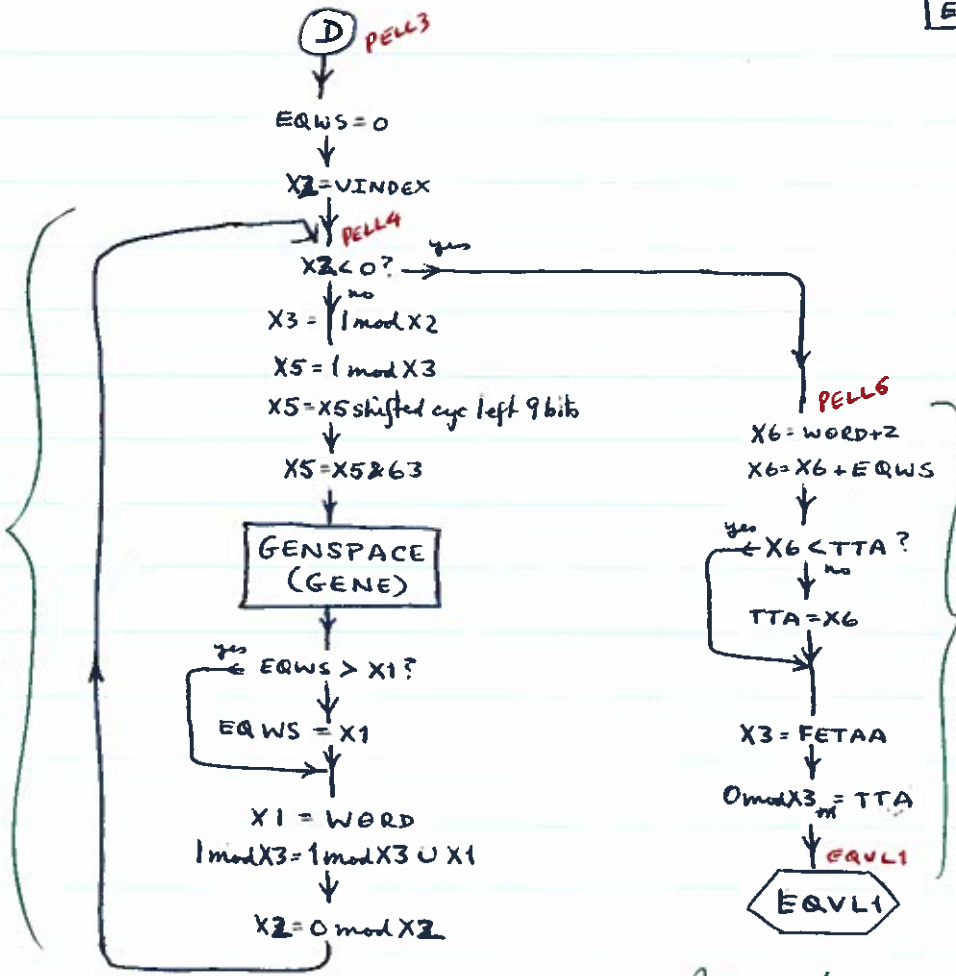 D
PELL3
EQWS = 0
X2 = VINDEX
PELL4
X2 < 0?
yes
no
X3 = 1 mod X2
X5 = 1 mod X3
X5 = X5 shifted cyc left 9 bits
X5 = X5 & 63
GENSPACE
(GENE)
yes
EQWS > X1?
EQWS = X1
X1 = WORD
1 mod X3 = 1 mod X3 ∪ X1
X2 = 0 mod X2
PELL6
X6 = WORD+2
X6 = X6 + EQWS
yes
X6 < TTA ?
no
TTA = X6
X3 = FETAA
0 mod X3 m = TTA
EQVL1
EQVL1